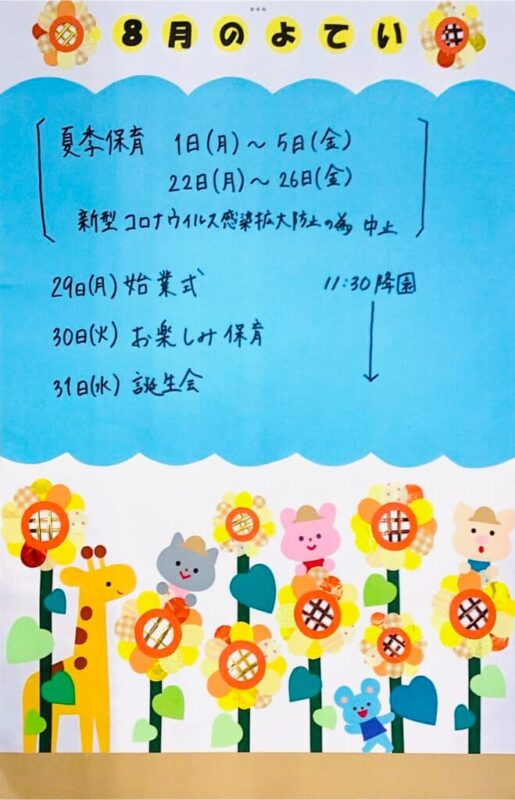 8月のよてい
夏季保育 1日(月)～5日(金)
22日(月)～26日(金)
新型コロナウイルス感染拡大防止の為 中止
29日(月) 始業式 11:30降園
30日(火) お楽しみ保育
31日(水) 誕生会